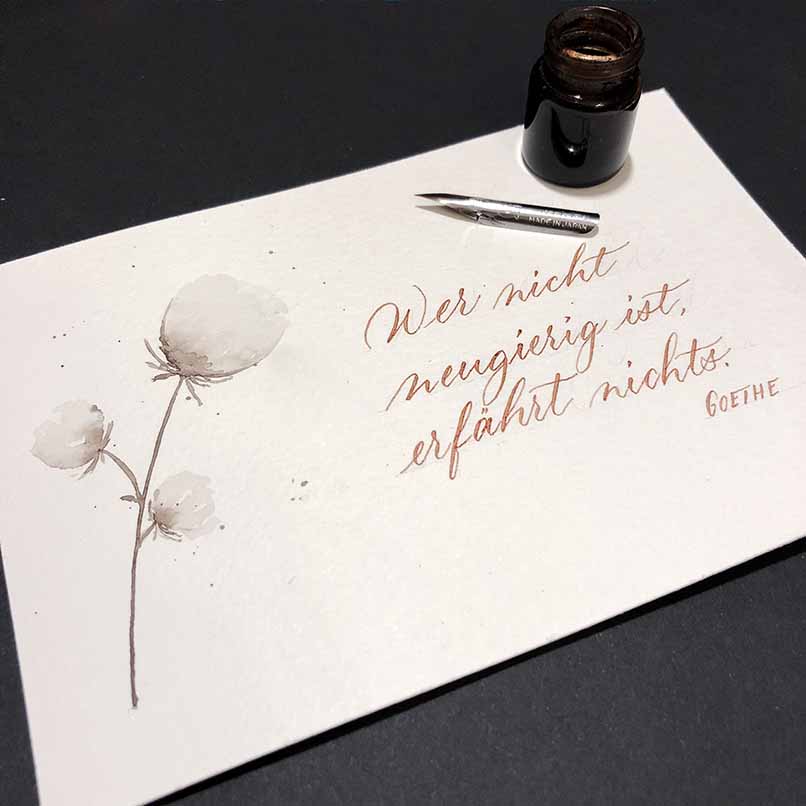 MADE IN JAPAN
Wer nicht
neugierig ist,
erfährt nichts.
GOETHE